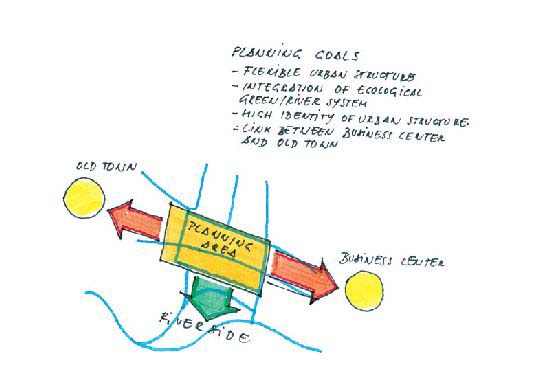 PLANNING GOALS
- FLEXIBLE URBAN STRUCTURE
- INTEGRATION OF ECOLOGICAL
GREEN/RIVER SYSTEM
- HIGH IDENTITY OF URBAN STRUCTURE
- LINK BETWEEN BUSINESS CENTER
AND OLD TOWN
OLD TOWN
PLANNING
AREA
BUSINESS CENTER
RIVERSIDE